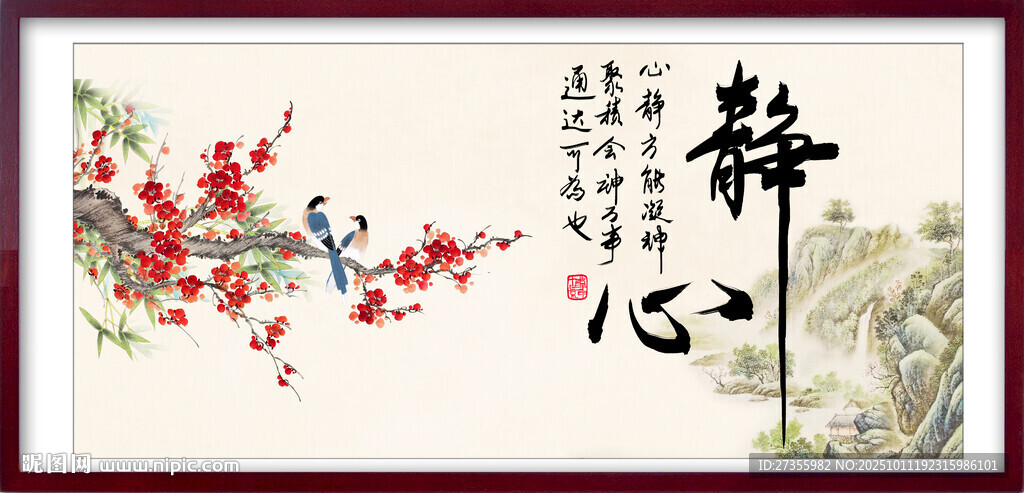 静心
心静方能凝神
聚精会神万事
通达可为也
昵图网 www.nipic.com
ID:27355982 NO:20251011192315986101